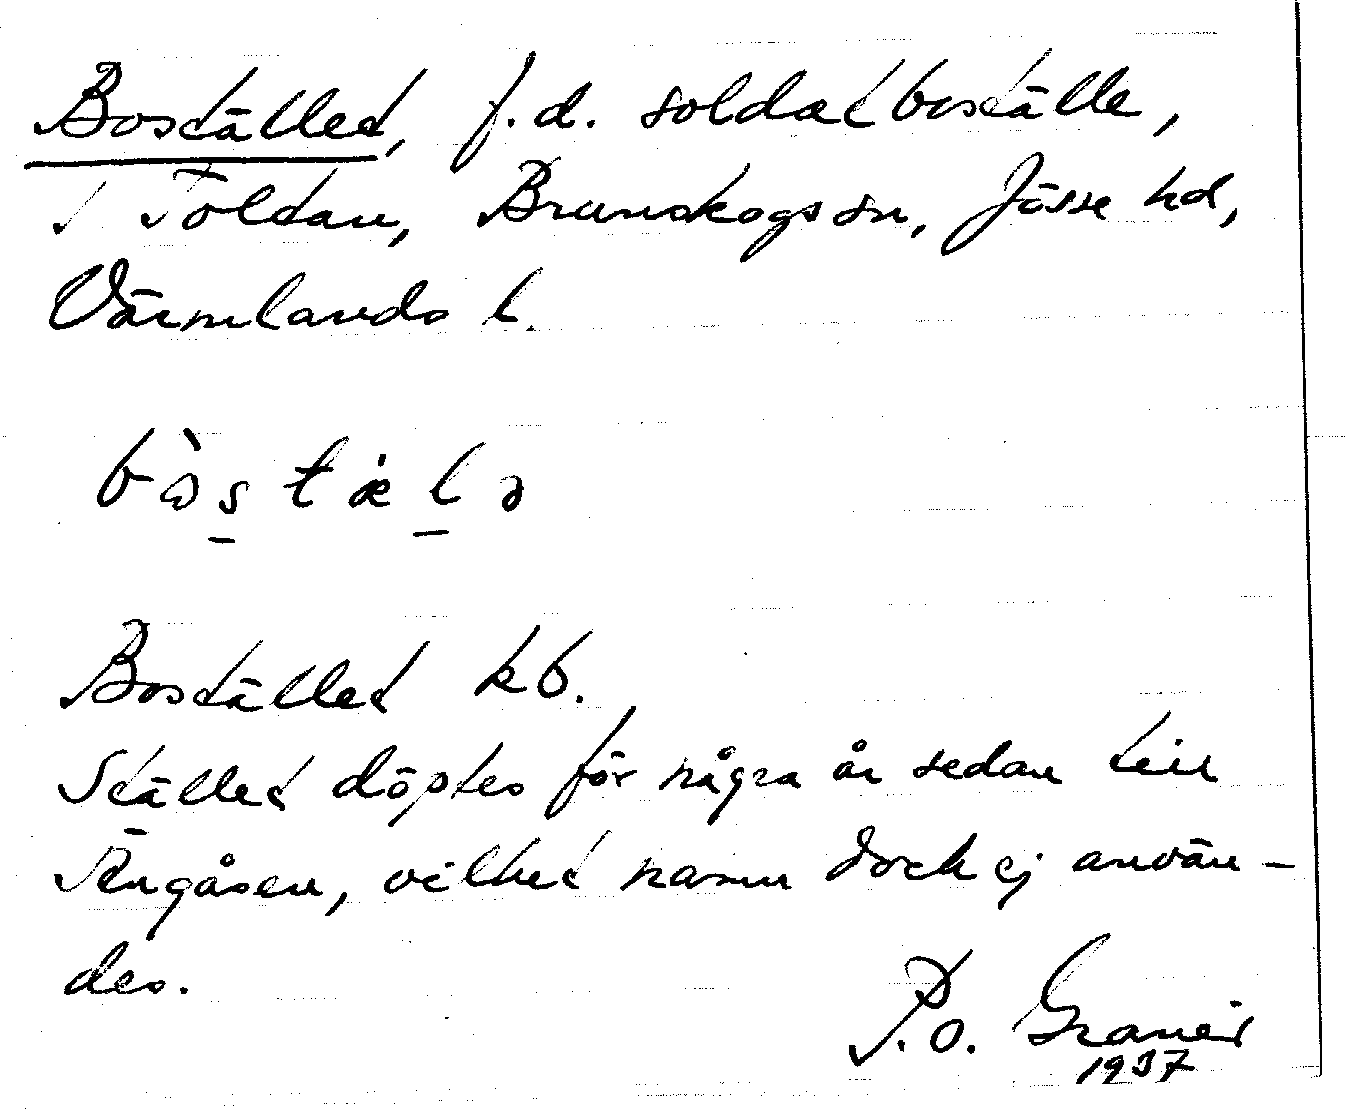 Bostället, f.d. soldatboställe,
i Toltan, Brunskogs sn, Jösse hd,
Värmlands l.
Bostället kb.
Stället döptes för några år sedan till
Ängåsen, vilket namn dock ej använ-
des.
P.O. Granér
1937